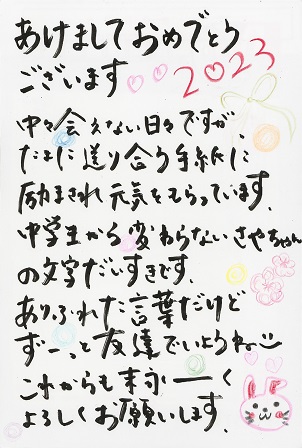 あけましておめでとう
ございます 2023
中々会えない日々ですが、
たまに送り合う手紙に
励まされ元気をもらっています。
中学生から変わらないさやちゃん
の文字だいすきです。
ありふれた言葉だけど
ずーっと友達でいようね
これからも末永ーく
よろしくお願いします。